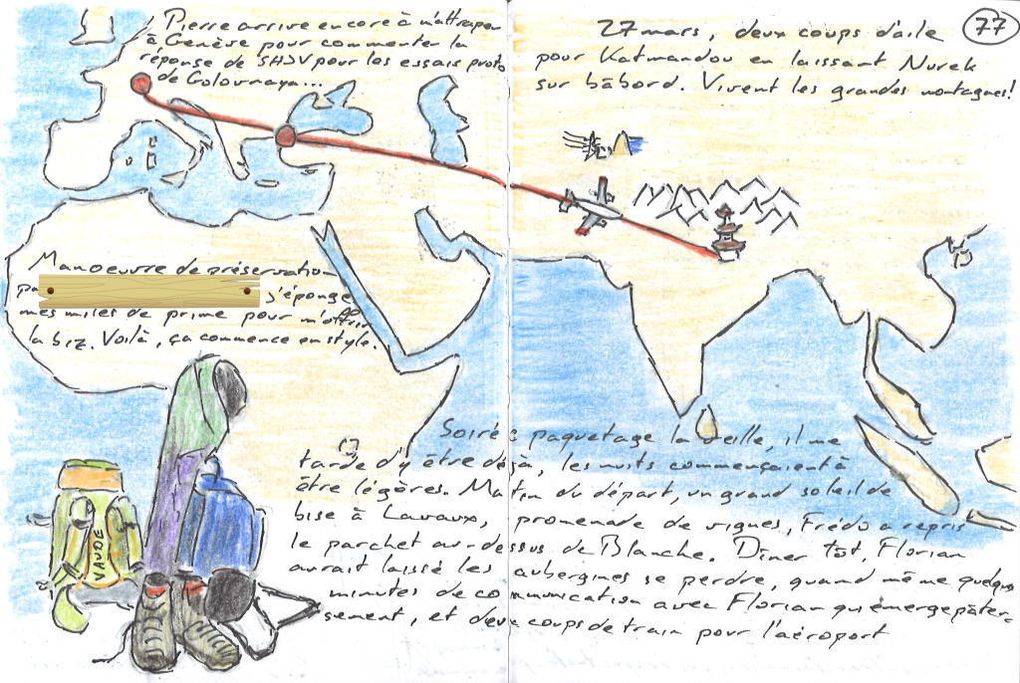 Pierre arrive encore à m'attraper
à Genève pour commenter la
réponse de SHJV pour les essais proto
de Golovnaya...
27 mars, deux coups d'aile
pour Katmandou en laissant Nurek
sur bâbord. Vivent les grandes montagnes!
77
Manoeuvre de préservation
pa
j'éponge
mes miles de prime pour m'offrir
la biz. Voilà, ça commence en style.
VAUDE
Soirée paquetage la veille, il me
tarde d'y être déjà, les nuits commençaient à
être légères. Matin du départ, un grand soleil de
bise à Lavaux, promenade de vignes, Frédo a repris
le parchet au-dessus de Blanche. Dîner tôt, Florian
aurait laissé les aubergines se perdre, quand même quelques
minutes de communication avec Florian qui émerge
sement, et deux coups de train pour l'aéroport